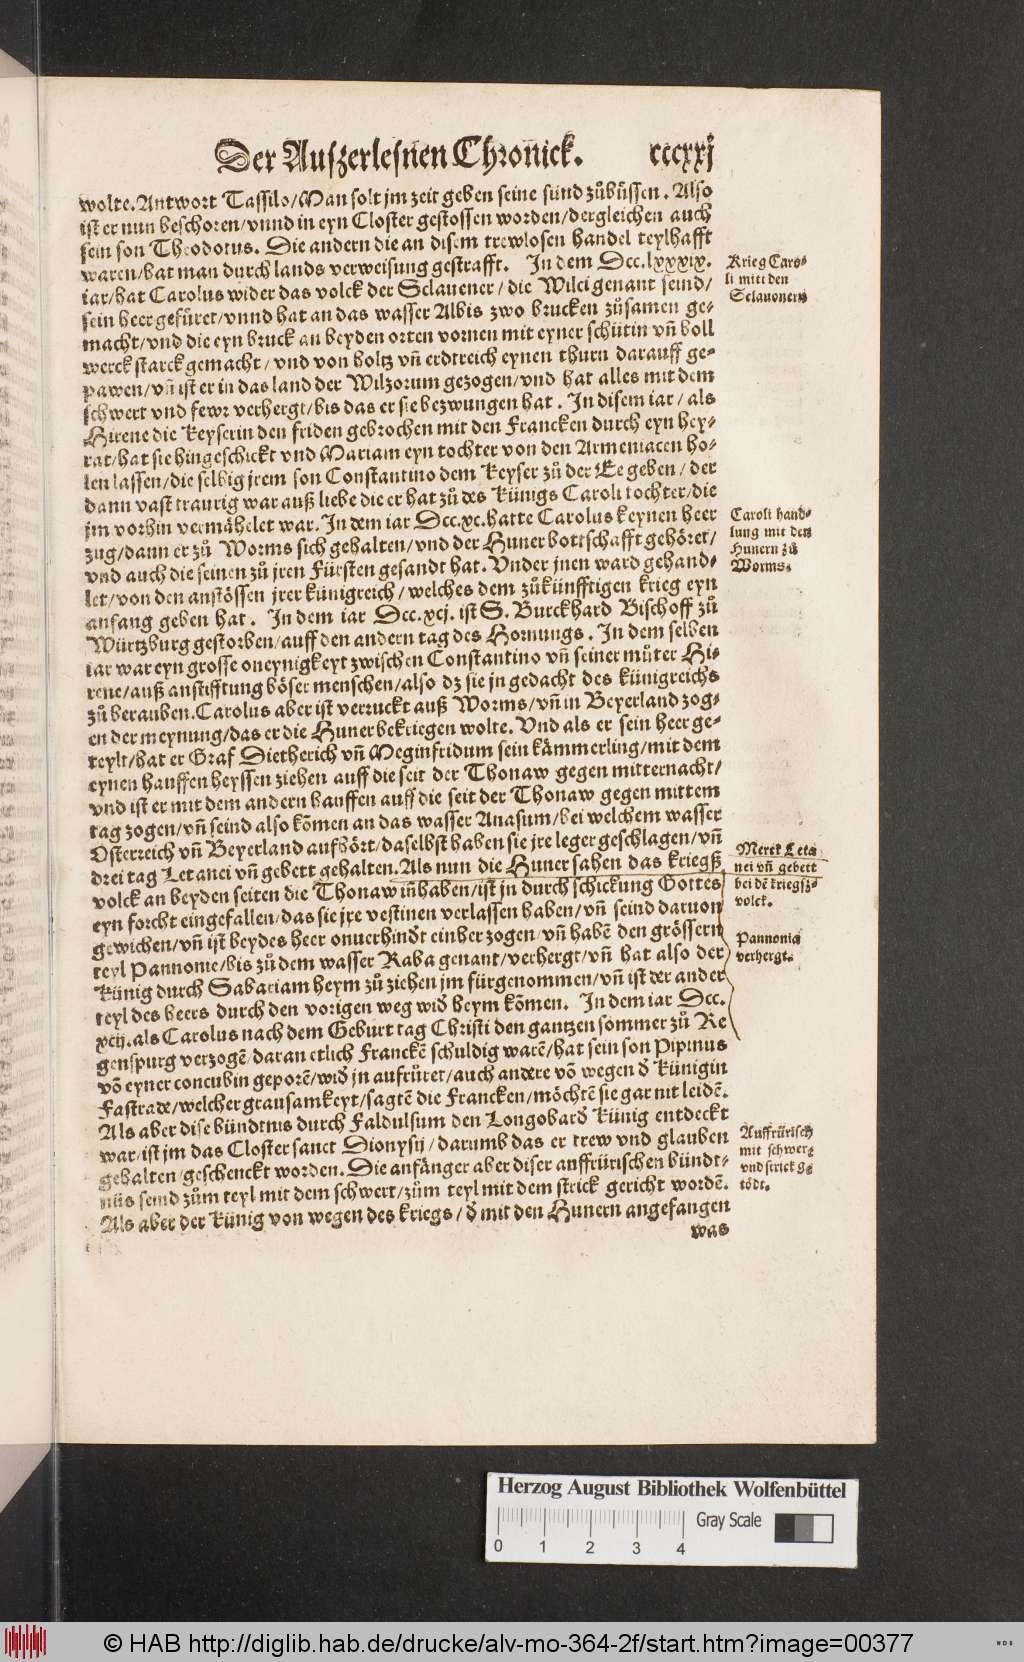 Der Auſzerleſnen Chronick. cccxxj
wolte. Antwort Taſſilo/Man ſolt jm zeit geben ſeine ſünd zůbüſſen. Alſo
iſt er nun beſchoren/vnnd in eyn Cloſter geſtoſſen worden/dergleichen auch
ſein ſon Theodotus. Die andern die an diſem trewloſen handel teylhafft
waren/hat man durch lands verweiſung geſtrafft. In dem Dcc.lxxxix.
iar/hat Carolus wider das volck der Sclauener/die Wilci genant ſeind/
ſein heer gefüret/vnnd hat an das waſſer Albis zwo brucken zůſamen ge⸗
macht/vnd die eyn bruck an beyden orten vornen mit eyner ſchütin vñ boll
werck ſtarck gemacht/vnd von holtz vñ erdtreich eynen thurn darauff ge⸗
pawen/vñ iſt er in das land der Wilzorum gezogen/vnd hat alles mit dem
ſchwert vnd fewr verhergt/bis das er ſie bezwungen hat. In diſem iar/als
Hirene die Keyſerin den friden gebrochen mit den Francken durch eyn hey⸗
rat/hat ſie hingeſchickt vnd Mariam eyn tochter von den Armeniacen ho⸗
len laſſen/die ſelbig jrem ſon Conſtantino dem Keyſer zů der Ee geben/der
dann vaſt traurig war auß liebe die er hat zů des Künigs Caroli tochter/die
jm vorhin vermähelet war. In dem iar Dcc.xc. hatte Carolus keynen heer
zug/dann er zů Worms ſich gehalten/vnd der Huner bottſchafft gehöret/
vnd auch die ſeinen zů jren Fürſten geſandt hat. Vnder jnen ward gehand⸗
let/von den anſtöſſen jrer künigreich/welches dem zůkünfftigen krieg eyn
anfang geben hat. In dem iar Dcc.xcj. iſt S. Burckhard Biſchoff zů
Würtzburg geſtorben/auff den andern tag des Hornungs. In dem ſelben
iar war eyn groſſe oneynigkeyt zwiſchen Conſtantino vñ ſeiner můter Hi⸗
rene/auß anſtifftung böſer menſchen/alſo dz ſie jn gedacht des künigreichs
zů berauben. Carolus aber iſt verruckt auß Worms/vñ in Beyerland zog⸗
en der meynung/das er die Huner bekriegen wolte. Vnd als er ſein heer ge⸗
teylt/hat er Graf Dietherich vñ Meginfridum ſein kämmerling/mit dem
eynen hauffen heyſſen ziehen auff die ſeit der Thonaw gegen mitternacht/
vnd iſt er mit dem andern hauffen auff die ſeit der Thonaw gegen mittem
tag zogen/vñ ſeind alſo kõmen an das waſſer Anaſum/bei welchem waſſer
Oſterreich vñ Beyerland aufhört/daſelbſt haben ſie jre leger geſchlagen/vñ
drei tag Letanei vñ gebett gehalten. Als nun die Huner ſahen das kriegß
volck an beyden ſeiten die Thonaw iñhaben/iſt jn durch ſchickung Gottes
eyn forcht eingefallen/das ſie jre veſtinen verlaſſen haben/vñ ſeind daruon
gewichen/vñ iſt beydes heer onuerhindt einher zogen/vñ habẽ den gröſſern
teyl Pannonie/bis zů dem waſſer Raba genant/verhergt/vñ hat alſo der
Künig durch Sabariam heym zů ziehen jm fürgenommen/vñ iſt der ander
teyl des heers durch den vorigen weg wid heym kõmen. In dem iar Dcc.
xcij. als Carolus nach dem Geburt tag Chriſti den gantzen ſommer zů Re
genſpurg verzogẽ/daran etlich Franckẽ ſchuldig warẽ/hat ſein ſon Pipinus
võ eyner concubin geporẽ/wid jn aufrůret/auch andere võ wegen d Künigin
Faſtrade/welcher grauſamkeyt/ſagtẽ die Francken/möchtẽ ſie gar nit leidẽ.
Als aber diſe bündtnis durch Faldulſum den Longobard Künig entdeckt
war/iſt jm das Cloſter ſanct Dionyſij/darumb das er trew vnd glauben
gehalten/geſchenckt worden. Die anfänger aber diſer auffrüriſchen bündt⸗
nüs ſeind zům teyl mit dem ſchwert/zům teyl mit dem ſtrick gericht wordẽ.
Als aber der Künig von wegen des kriegs/d mit den Hunern angefangen
was
Krieg Caro⸗
li mitt den
Sclauonern
Caroli hand⸗
lung mit den
Hunern zů
Worms.
Merck Leta
nei vñ gebett
bei dẽ kriegſz⸗
volck.
Pannonia
verhergt.
Auffrüriſch
mit ſchwer⸗
vnd ſtrick g⸗
tödt.
Herzog August Bibliothek Wolfenbüttel
0 1 2 3 4
Gray Scale
© HAB http://diglib.hab.de/drucke/alv-mo-364-2f/start.htm?image=00377